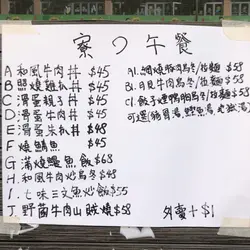 寮の午餐
A 和風牛肉丼 $45
B 照燒雞扒丼 $45
C 滑蛋親子丼 $45
D 滑蛋牛肉丼 $45
E 滑蛋朱扒丼 $48
F 燒鯖魚 $45
G 滿燒鰻魚飯 $68
H 和風牛肉炒烏冬 $48
I 七味三文魚炒飯 $55
J 野菌牛肉山賊燒 $58
A1. 烏冬/拉麵 $58
B1. 月見牛肉烏冬/拉麵 $58
C1. 餃子煙鴨胸烏冬/拉麵 $58
外賣+$1